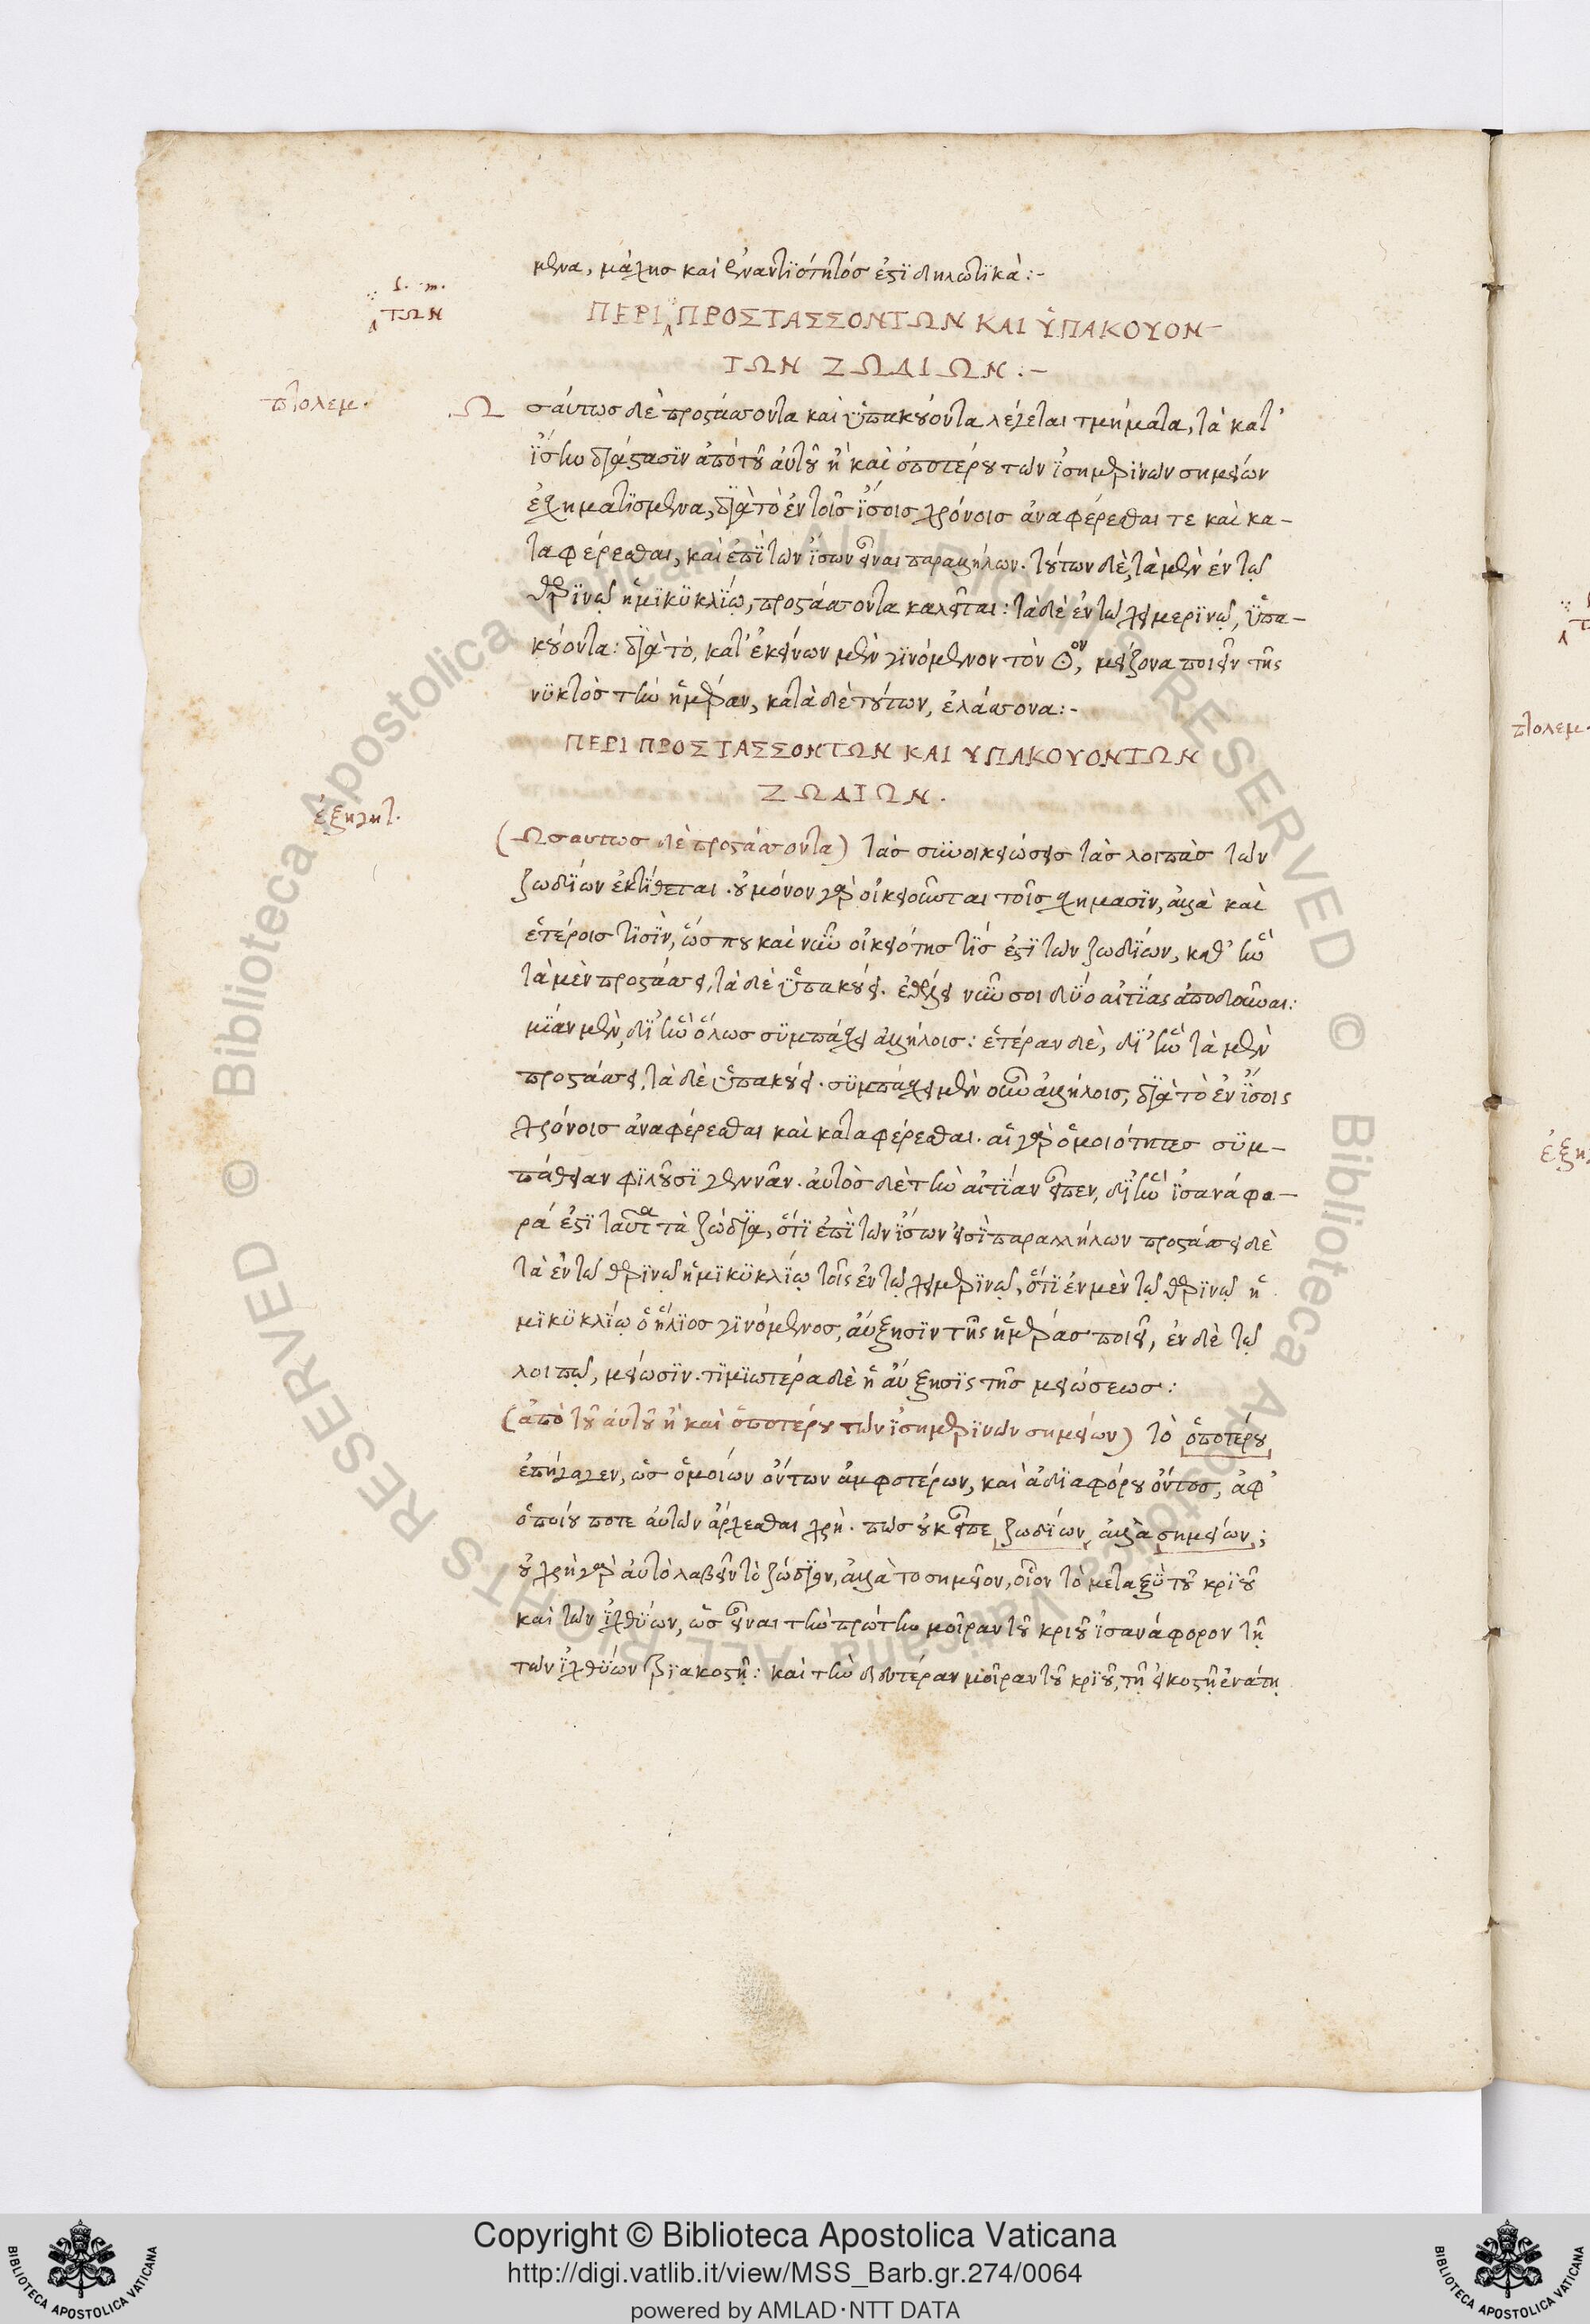 μενα, μάχης καὶ ἐναντιότητός ἐστι δηλωτικὰ:-
s. m.
ΤΩΝ
ΠΕΡΙ ΠΡΟΣΤΑΣΣΟΝΤΩΝ ΚΑΙ ὙΠΑΚΟΥΟΝ-
ΤΩΝ ΖΩΔΙΩΝ:-
πτολεμ.
Ωσάυτως δὲ προστάσσοντα καὶ ὑπακούοντα λέγεται τμήματα, τὰ κατ'
ἴσην διάστασιν ἀπὸ τοῦ ἀυτοῦ ἢ καὶ ὁποτέρου τῶν ἰσημερινῶν σημείων
ἐσχηματισμένα, διὰ τὸ ἐν τοῖς ἴσοις χρόνοις ἀναφέρεσθαι τε καὶ κα-
ταφέρεσθαι, καὶ ἐπὶ τῶν ἴσων εἶναι παραλλήλων. τούτων δὲ, τὰ μὲν ἐν τῷ
θερινῷ ἡμικυκλίῳ, προστάσσοντα καλεῖται: τὰ δὲ ἐν τῷ χειμερινῷ, ὑπα-
κούοντα: διὰ τὸ, κατ' ἐκείνων μὲν γινόμενον τὸν ☉ον, μείζονα ποιεῖν τῆς
νυκτὸς τὴν ἡμέραν, κατὰ δὲ τούτων, ἐλάσσονα:-
ΠΕΡΙ ΠΡΟΣΤΑΣΣΟΝΤΩΝ ΚΑΙ ΥΠΑΚΟΥΟΝΤΩΝ
ΖΩΔΙΩΝ.
ἐξηγητ.
(Ωσαυτως δὲ προστάσσοντα) τὰς συνοικειώσεις τὰς λοιπὰς τῶν
ζωδίων ἐκτίθεται. οὐ μόνον γὰρ οἰκειοῦσται τοῖς σχημασὶν, ἀλλὰ καὶ
ἑτέροις τισὶν, ὥσπου καὶ νῦν οἰκειότης τίς ἐστι τῶν ζωδίων, καθ' ἣν
τὰ μὲν προστάσσει, τὰ δὲ ὑπακούει. ἐθέλει νῦν σοι δύο αἰτίας ἀποδοῦναι:
μίαν μὲν, δι' ἣν ὅλως συμπάσχει ἀλλήλοις: ἑτέραν δὲ, δι' ἣν τὰ μὲν
προστάσσει, τὰ δὲ ὑπακούει. συμπάσχει μὲν οὖν ἀλλήλοις, διὰ τὸ ἐν ἴσοις
χρόνοις ἀναφέρεσθαι καὶ καταφέρεσθαι. αἱ γὰρ ὁμοιότητες συμ-
πάθειαν φιλοῦσι γεννᾶν. ἀυτὸς δὲ τὴν αἰτίαν εἶπεν, δι' ἣν ἰσανάφο-
ρά ἐστι ταῦτα τὰ ζώδια, ὅτι ἐπὶ τῶν ἴσων εἰσὶ παραλλήλων προστάσσει δὲ
τὰ ἐν τῷ θερινῷ ἡμικυκλίῳ τοῖς ἐν τῷ χειμερινῷ, ὅτι ἐν μὲν τῷ θερινῷ ἡ
μικυκλίῳ ὁ ἥλιος γινόμενος, ἀύξησιν τῆς ἡμέρας ποιεῖ, ἐν δὲ τῷ
λοιπῷ, μείωσιν. τιμιωτέρα δὲ ἡ ἀύξησις τῆς μειώσεως:
(ἀπὸ τοῦ ἀυτοῦ ἢ καὶ ὁποτέρου τῶν ἰσημερινῶν σημείων) τὸ ὁποτέρου
ἐπήγαγεν, ὡς ὁμοίων ὄντων ἀμφοτέρων, καὶ ἀδιαφόρου ὄντος, ἀφ'
ὁποίου ποτε ἀυτῶν ἄρχεσθαι χρή. πῶς οὐκ εἶπε ζωδίων, ἀλλὰ σημείων;
οὐ χρὴ γὰρ ἀυτὸ λαβεῖν τὸ ζώδιον, ἀλλὰ το σημεῖον, οἷον τὸ μεταξὺ τοῦ κριοῦ
καὶ τῶν ἰχθύων, ὡς εἶναι τὴν πρώτην μοῖραν τοῦ κριοῦ ἰσανάφορον τῇ
τῶν ἰχθύων τριακοστῇ: καὶ τὴν δευτέραν μοῖραν τοῦ κριοῦ, τῇ εἰκοστῇ ἐνάτῃ
Copyright © Biblioteca Apostolica Vaticana
http://digi.vatlib.it/view/MSS_Barb.gr.274/0064
powered by AMLAD·NTT DATA